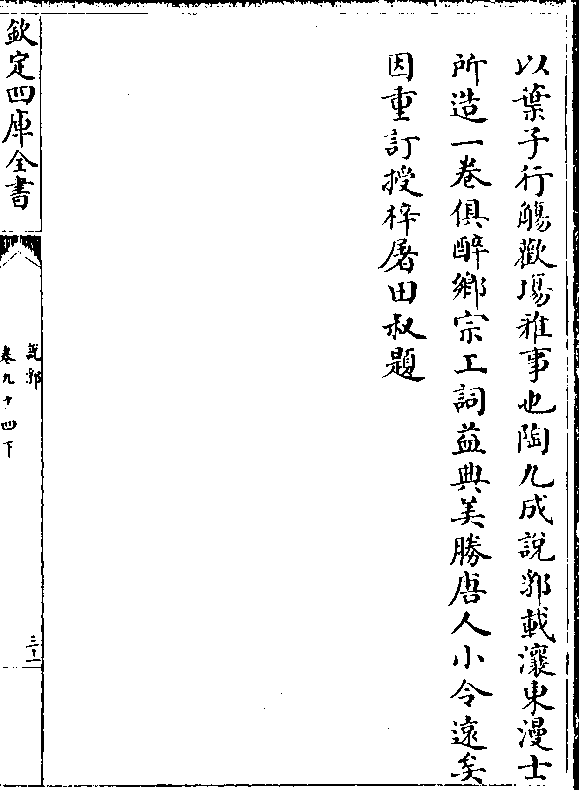 以葉子行觴歡場雅事也陶九成說郛載瀼東漫士
所造一卷俱醉鄉宗工詞益典美勝唐人小令遠矣
因重訂授梓屠田叔題
欽定四庫全書
說郛
卷九十四下